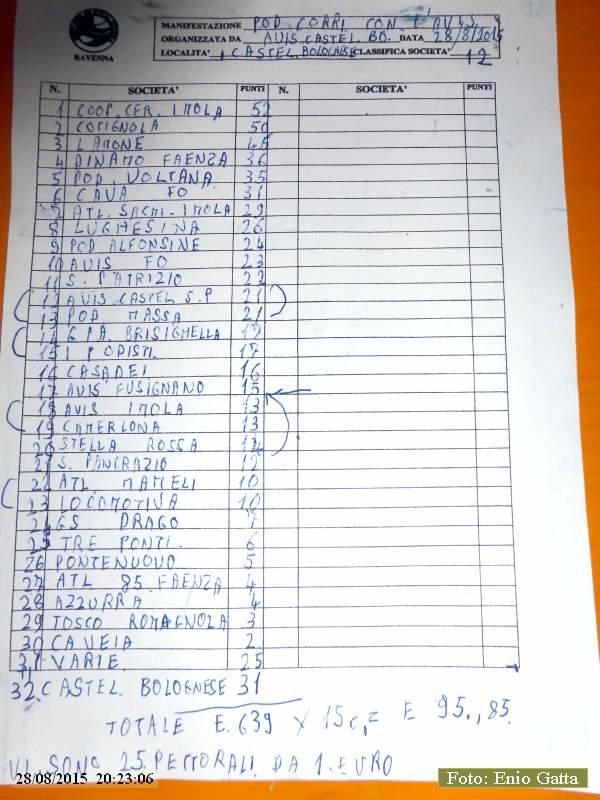 RAVENNA
MANIFESTAZIONE POD CORRI CON L'AVIS
ORGANIZZATA DA AVIS. CASTEL. BO. DATA 28/8/2015
LOCALITA' CASTEL. BOLOGNESE CLASSIFICA SOCIETA' 12
N. SOCIETA' PUNTI N. SOCIETA' PUNTI
1 COOP. CER. IMOLA 52
2 COTIGNOLA 50
3 LAMONE 45
4 DINAMO FAENZA 36
5 POD. VOLTANA 35
6 CAVA FO 31
7 ATL. SACMI-IMOLA 29
8 LUGHESINA 26
9 POD ALFONSINE 24
10 AVIS FO 23
11 S. PATRIZIO 22
12 AVIS CASTEL S.P 21
13 POD MASSA 21
14 G PA. BRISIGHELLA 17
15 I PODISTI. 17
16 CASADEI 16
17 AVIS FUSIGNANO 15
18 AVIS IMOLA 13
19 CAMERLONA 13
20 STELLA ROSSA
21 S. PANCRAZIO 12
22 ATL MAMELI 10
23 LOCOMOTIVA 10
24 GS DRAGO 7
25 TRE PONTI. 6
26 PONTENUOVO 5
27 ATL 85. FAENZA 4
28 AZZURRA 4
29 TOSCO ROMAGNOLA 3
30 CAVEIA 2
31 VARIE. 25
32. CASTEL. BOLOGNESE 31
TOTALE E. 639 x 15 c. = E 95,,85.
VI. SONO 25. PETTORALI DA 1. EURO
28/08/2015 20:23:06
Foto: Enio Gatta